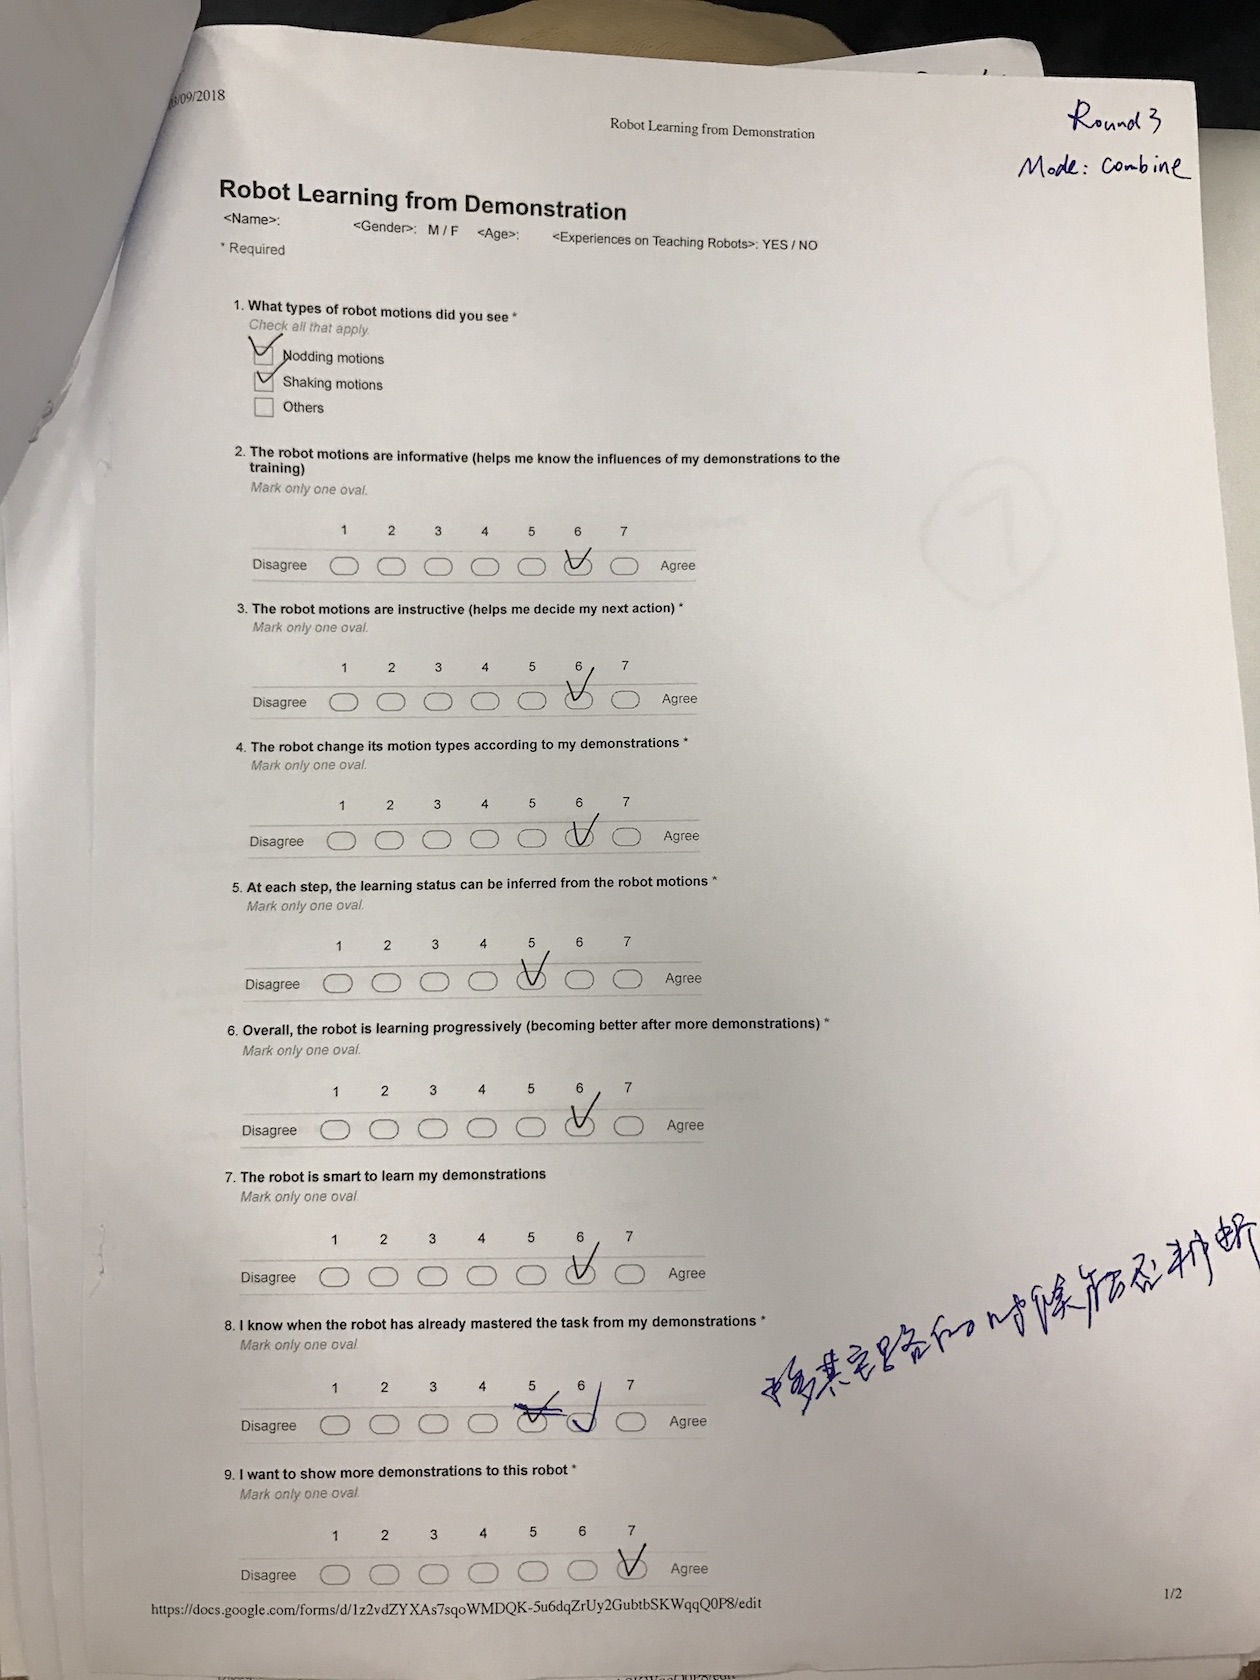 /09/2018
Robot Learning from Demonstration
Round 3
Mode: Combine
Robot Learning from Demonstration
<Name>: <Gender>: M / F <Age>: <Experiences on Teaching Robots>: YES / NO
* Required
1. What types of robot motions did you see *
Check all that apply.
Nodding motions
Shaking motions
Others
2. The robot motions are informative (helps me know the influences of my demonstrations to the
training)
Mark only one oval.
1 2 3 4 5 6 7
Disagree Agree
3. The robot motions are instructive (helps me decide my next action) *
Mark only one oval.
1 2 3 4 5 6 7
Disagree Agree
4. The robot change its motion types according to my demonstrations *
Mark only one oval.
1 2 3 4 5 6 7
Disagree Agree
5. At each step, the learning status can be inferred from the robot motions *
Mark only one oval.
1 2 3 4 5 6 7
Disagree Agree
6. Overall, the robot is learning progressively (becoming better after more demonstrations) *
Mark only one oval.
1 2 3 4 5 6 7
Disagree Agree
7. The robot is smart to learn my demonstrations
Mark only one oval.
1 2 3 4 5 6 7
Disagree Agree
8. I know when the robot has already mastered the task from my demonstrations *
Mark only one oval.
1 2 3 4 5 6 7
Disagree Agree
路的时候能否判断
9. I want to show more demonstrations to this robot *
Mark only one oval.
1 2 3 4 5 6 7
Disagree Agree
https://docs.google.com/forms/d/1z2vdZYXAs7sqoWMDQK-5u6dqZrUy2GubtbSKWqqQ0P8/edit
1/2